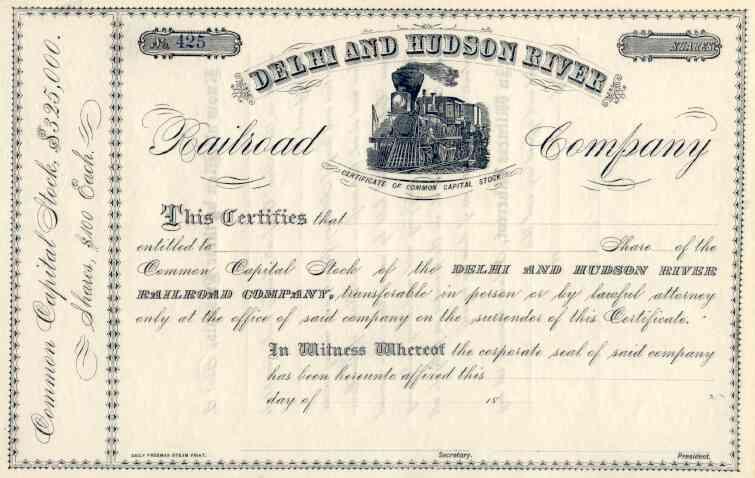 No. 425
SHARES
DELHI AND HUDSON RIVER
Railroad Company
CERTIFICATE OF COMMON CAPITAL STOCK
Common Capital Stock, $325,000.
Shares, $100 Each.
This Certifies that
entitled to Share of the
Common Capital Stock of the DELHI AND HUDSON RIVER
RAILROAD COMPANY, transferable in person or by lawful attorney
only at the office of said company on the surrender of this Certificate.
In Witness Whereof the corporate seal of said company
has been hereunto affixed this
day of 18
DAILY FREEMAN STEAM PRINT.
Secretary.
President.